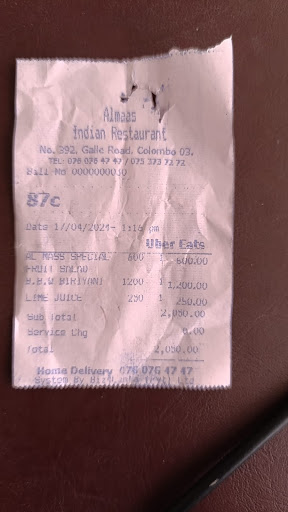 Almaas
Indian Restaurant
No. 392, Galle Road, Colombo 03.
TEL: 076 076 47 47 / 075 373 72 72
Bill No 0000000030
87c
Date 17/04/2024- 1:16 pm
Uber Eats
AL MASS SPECIAL 600 1 600.00
FRUIT SALAD
B.B.Q BIRIYANI 1200 1 1,200.00
LIME JUICE 250 1 250.00
Sub Total 2,050.00
Service Chg 0.00
Total 2,050.00
Home Delivery 076 076 47 47
System By Ltd